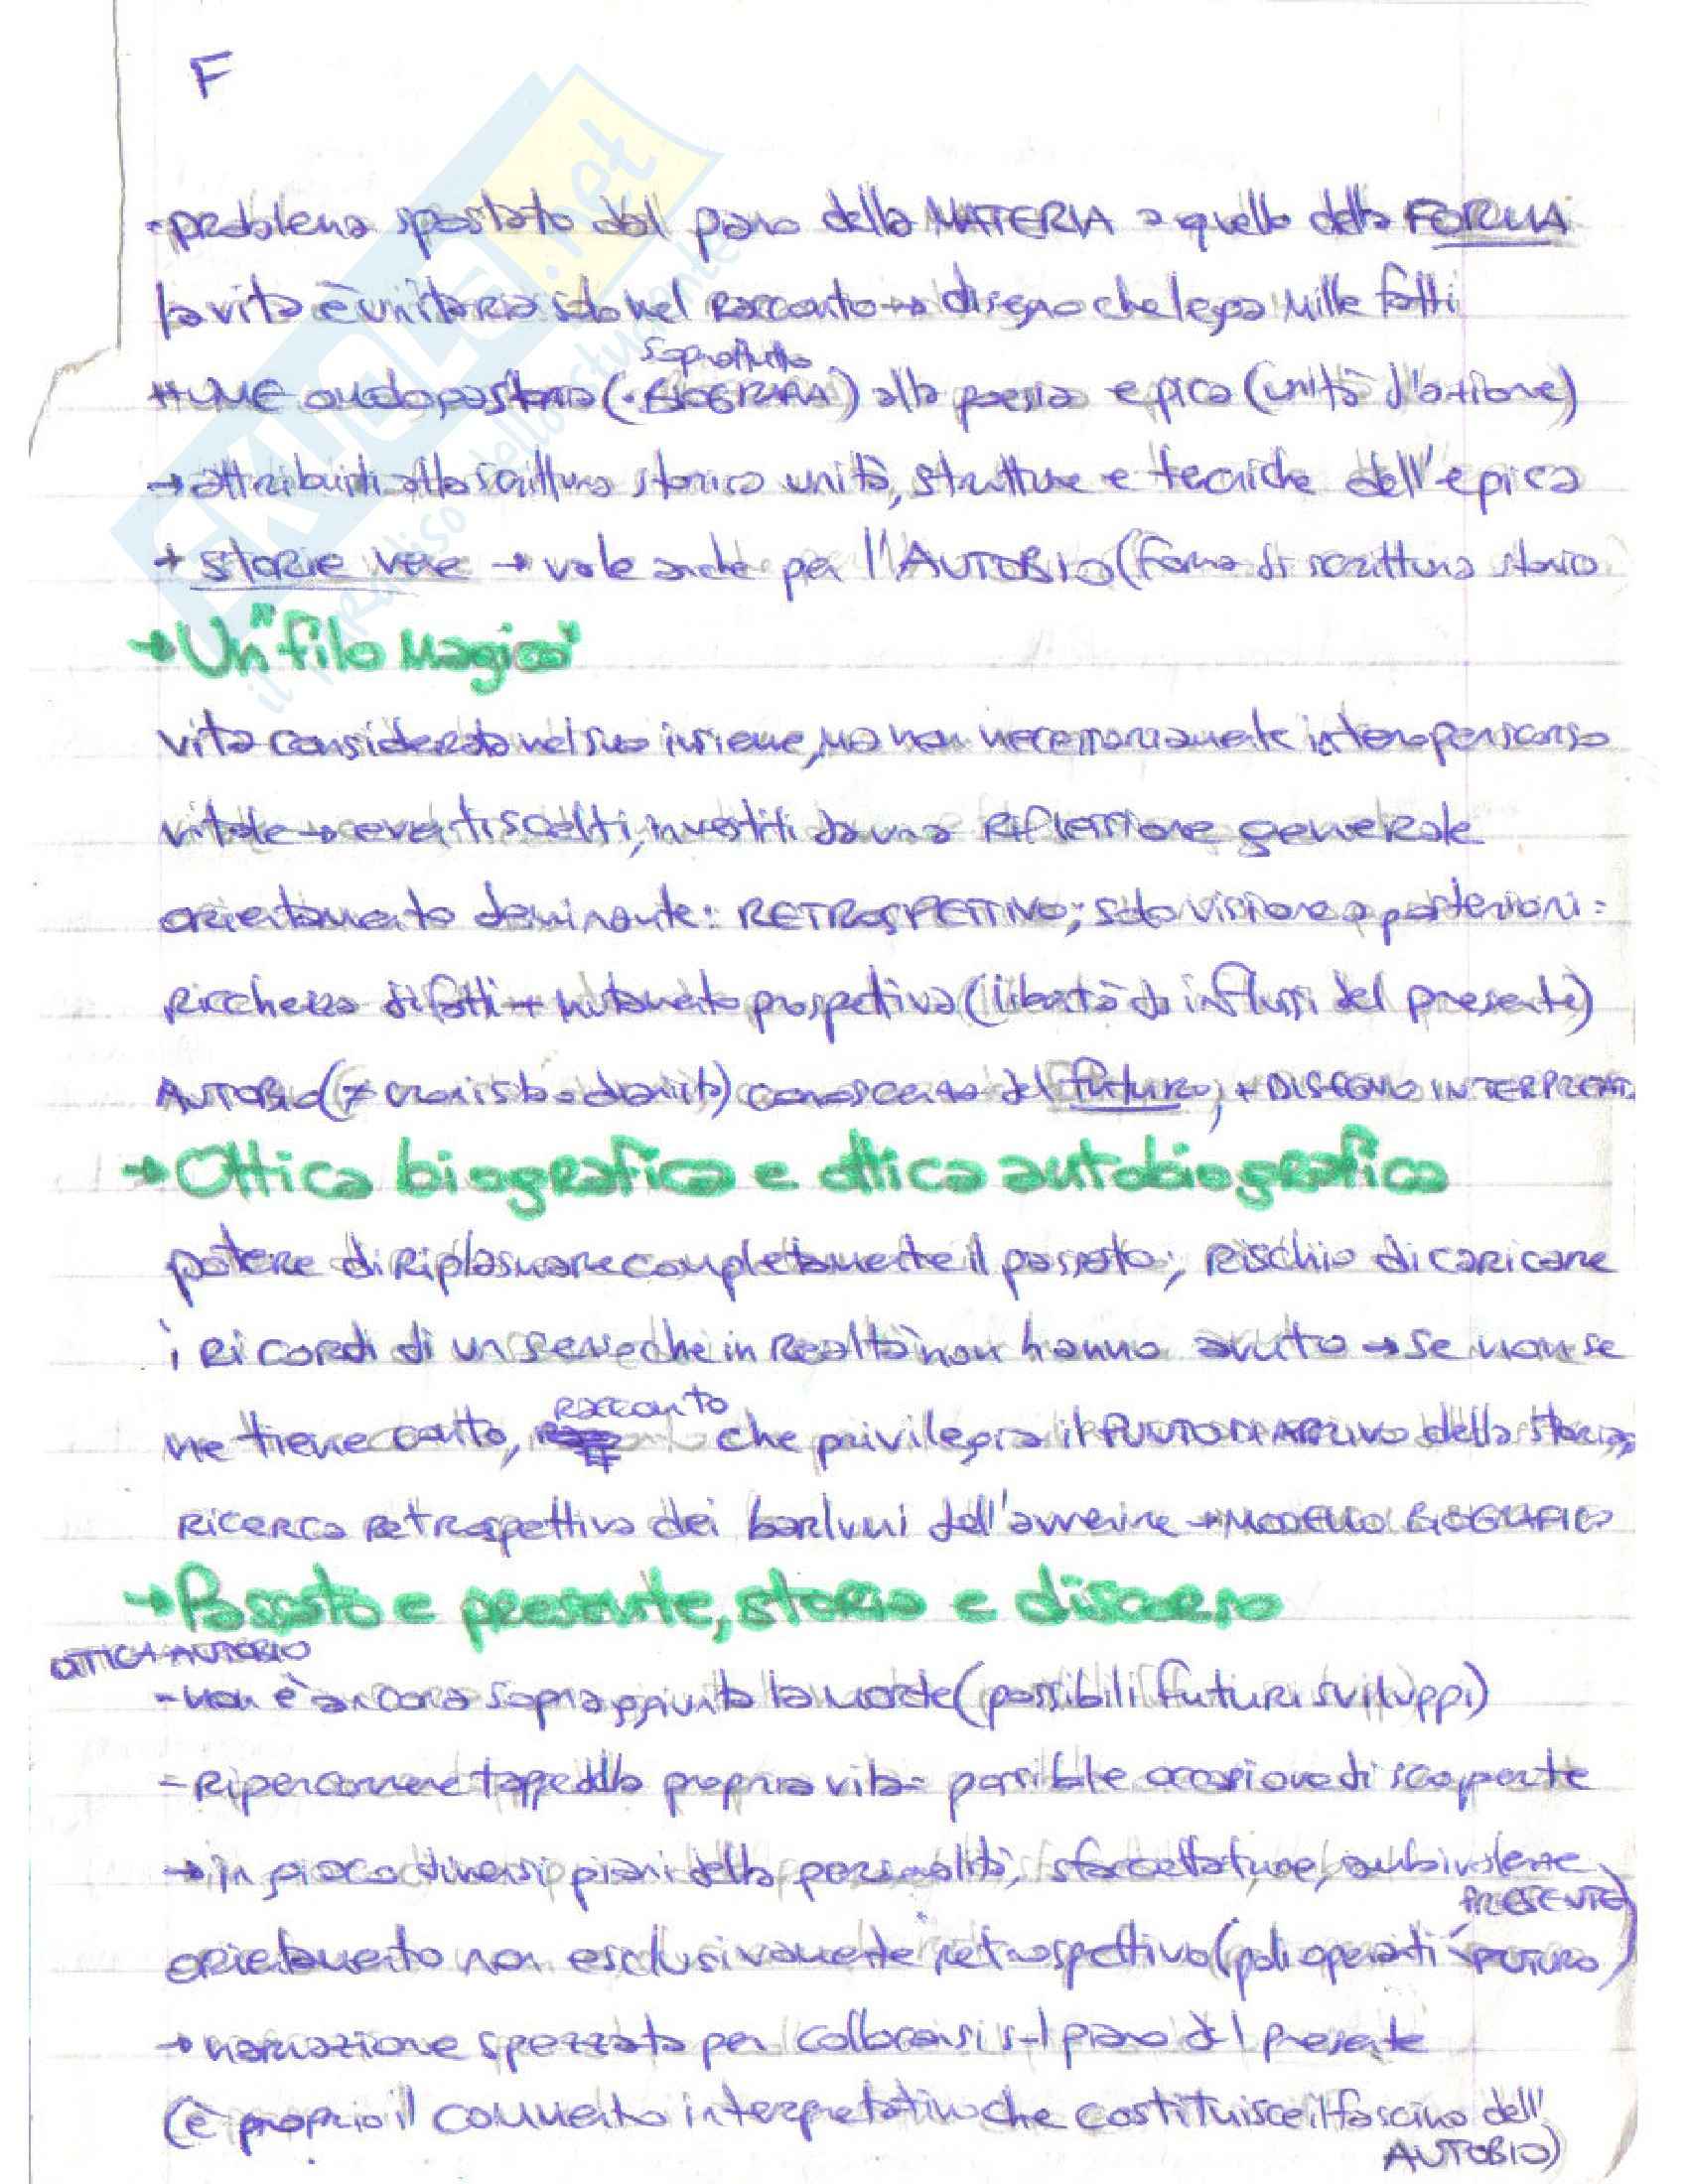 F
SKUOLA.net
il paradiso dello studente
- problema spostato dal piano della MATERIA a quello della FORMA
la vita è unitaria solo nel racconto → disegno che lega mille fatti
HUME accosta storia (soprattutto BIOGRAFIA) alla poesia epica (unità d'azione)
→ attribuiti alla scrittura storica unità, strutture e tecniche dell'epica
+ storie vere → vale anche per l'AUTOBIO (forma di scrittura storica
→ Un "filo magico"
vita considerata nel suo insieme, ma non necessariamente intero percorso
vitale → eventi scelti, investiti da una riflessione generale
orientamento dominante: RETROSPETTIVO; solo visione a posteriori =
ricchezza di fatti + mutamento prospettiva (libertà da influssi del presente)
AUTOBIO (≠ cronista o diarista) conoscenza del futuro, + DISEGNO INTERPRETAT.
→ Ottica biografica e ottica autobiografica
potere di riplasmare completamente il passato; rischio di caricare
i ricordi di un senso che in realtà non hanno avuto → se non se
ne tiene conto, racconto che privilegia il PUNTO DI ARRIVO della storia,
ricerca retrospettiva dei barlumi dell'avvenire → MODELLO BIOGRAFICO
→ Passato e presente, storia e discorso
OTTICA AUTOBIO
- non è ancora sopraggiunta la morte (possibili futuri sviluppi)
- ripercorrere tappe della propria vita = possibile occasione di scoperte
→ in gioco diversi piani della personalità, sfaccettature, ambivalenze
orientamento non esclusivamente retrospettivo (poli operanti PRESENTE FUTURO)
→ narrazione spezzata per collocarsi sul piano del presente
(è proprio il commento interpretativo che costituisce il fascino dell'
AUTOBIO)